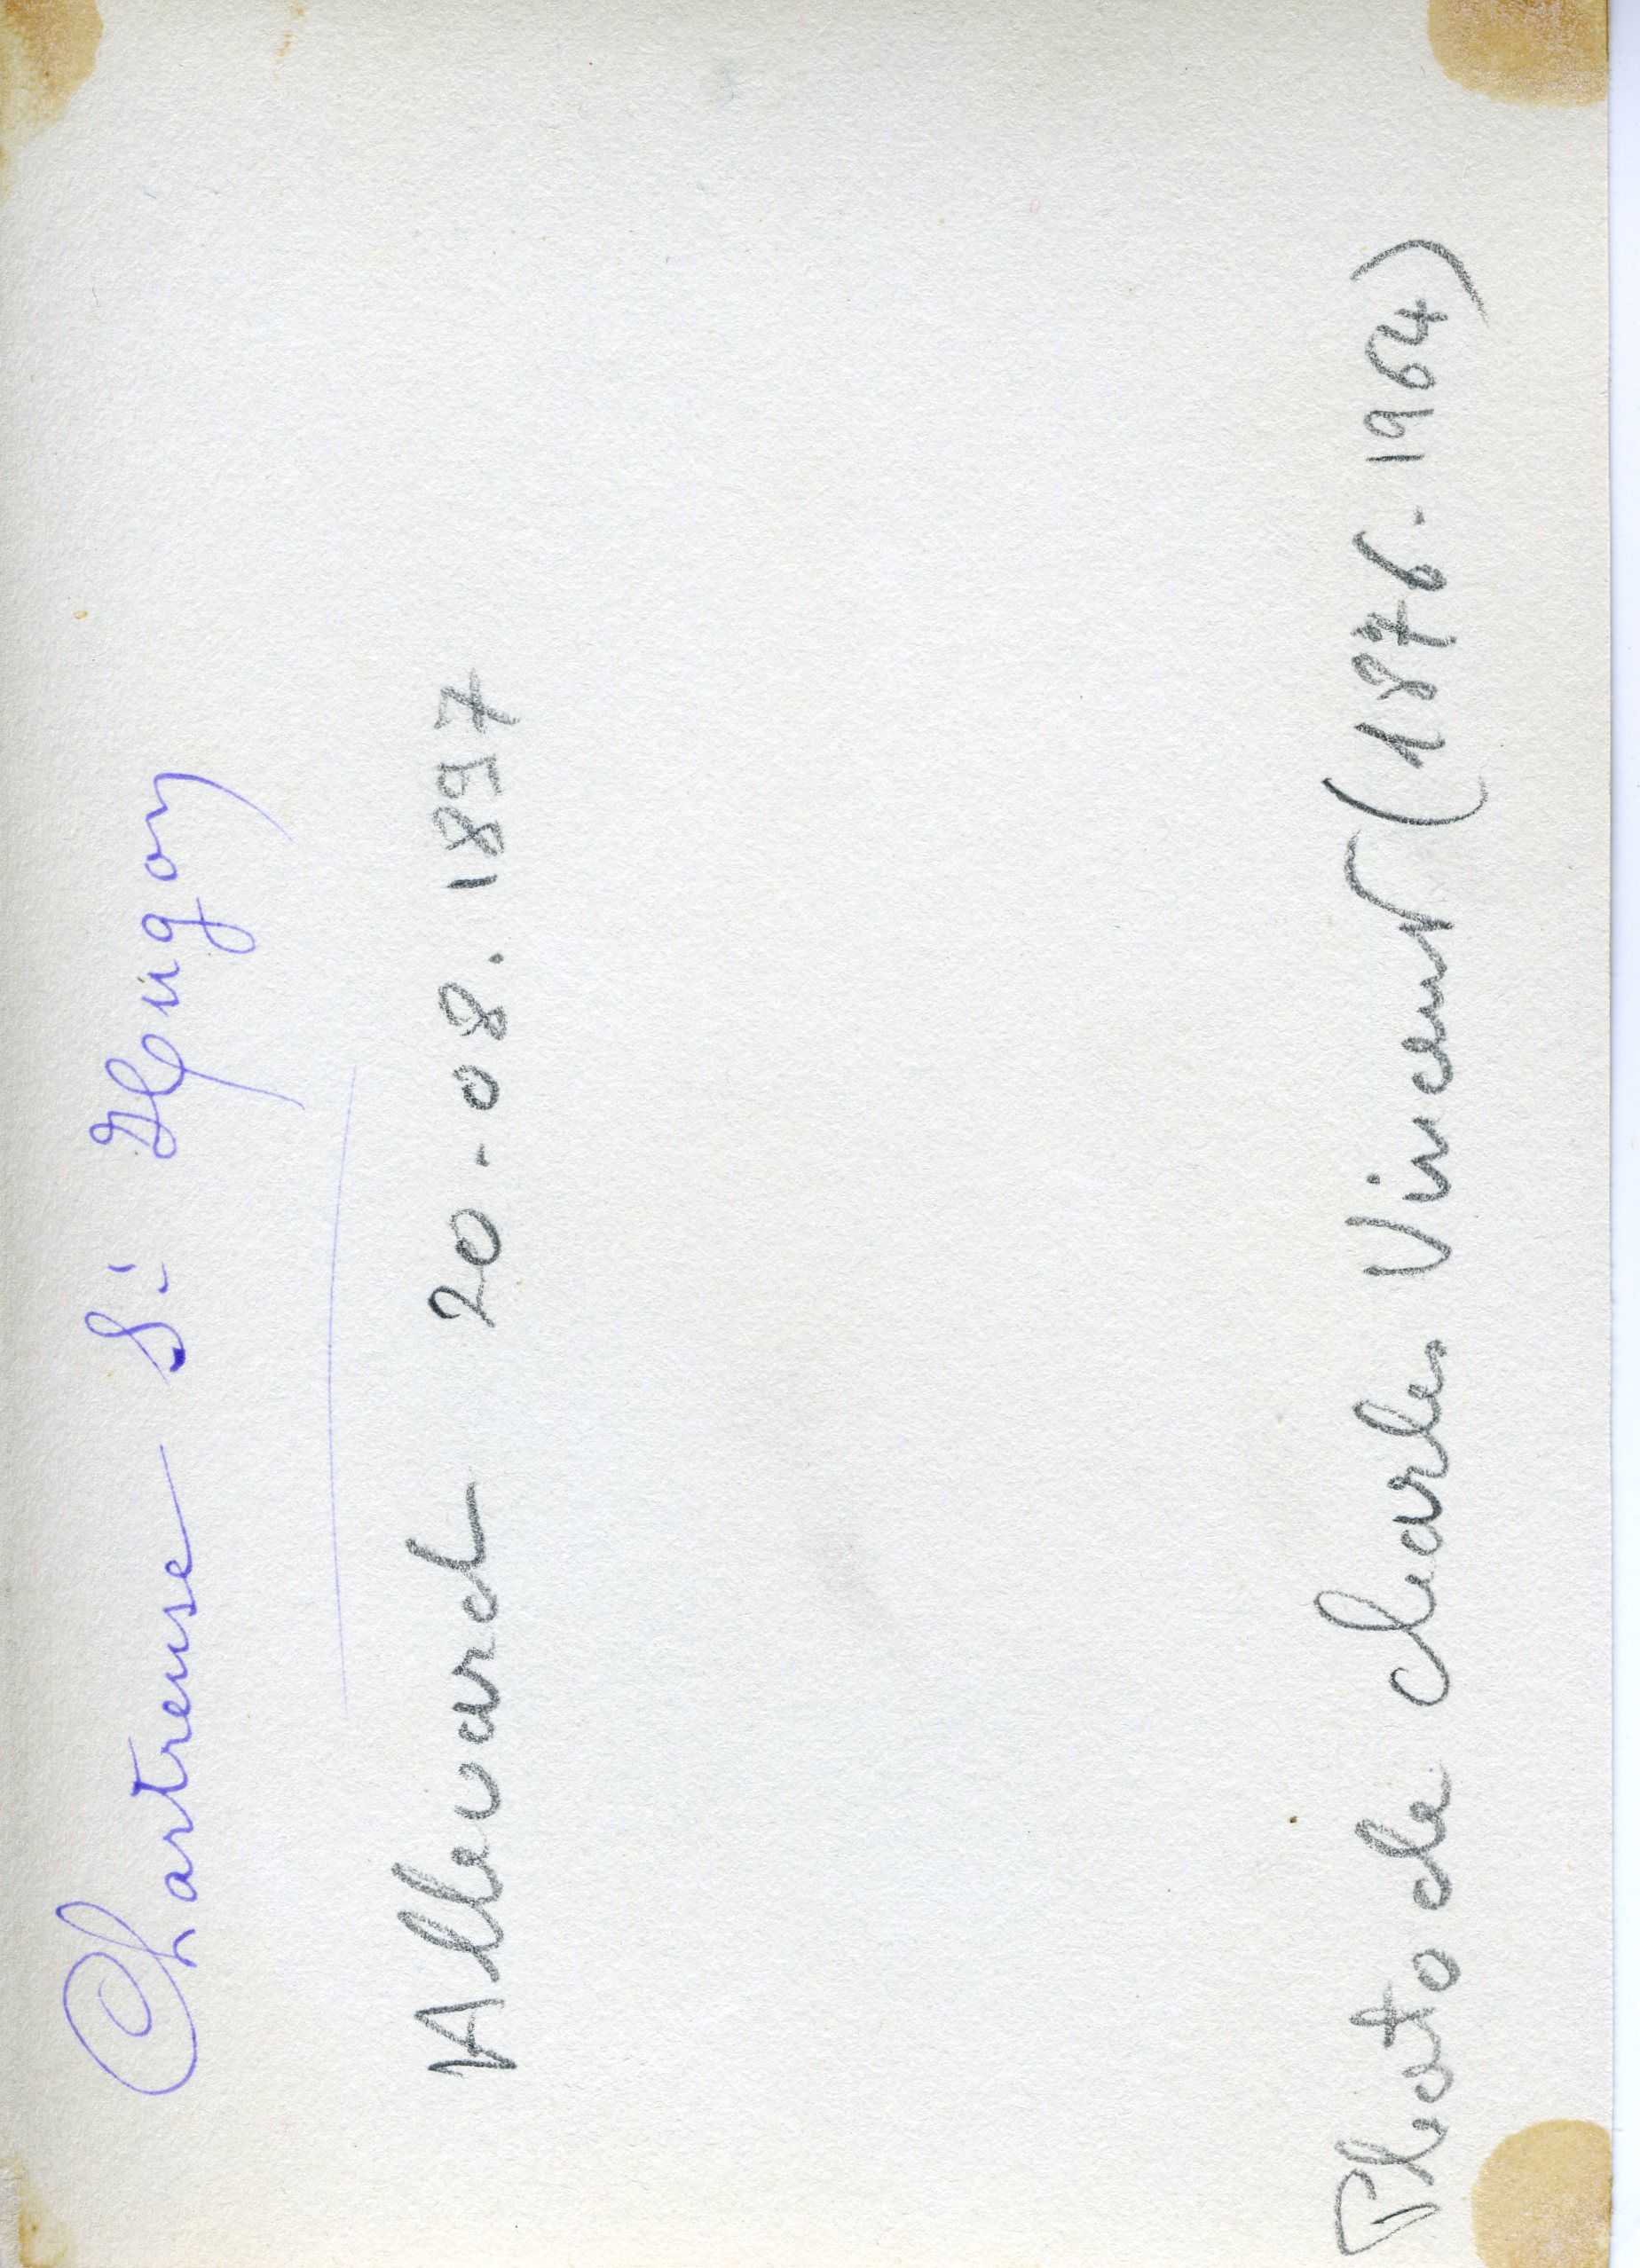 Chartreuse St Hugon
Allevard 20-08.1897
Photo de Charles Vincent (1876-1964)